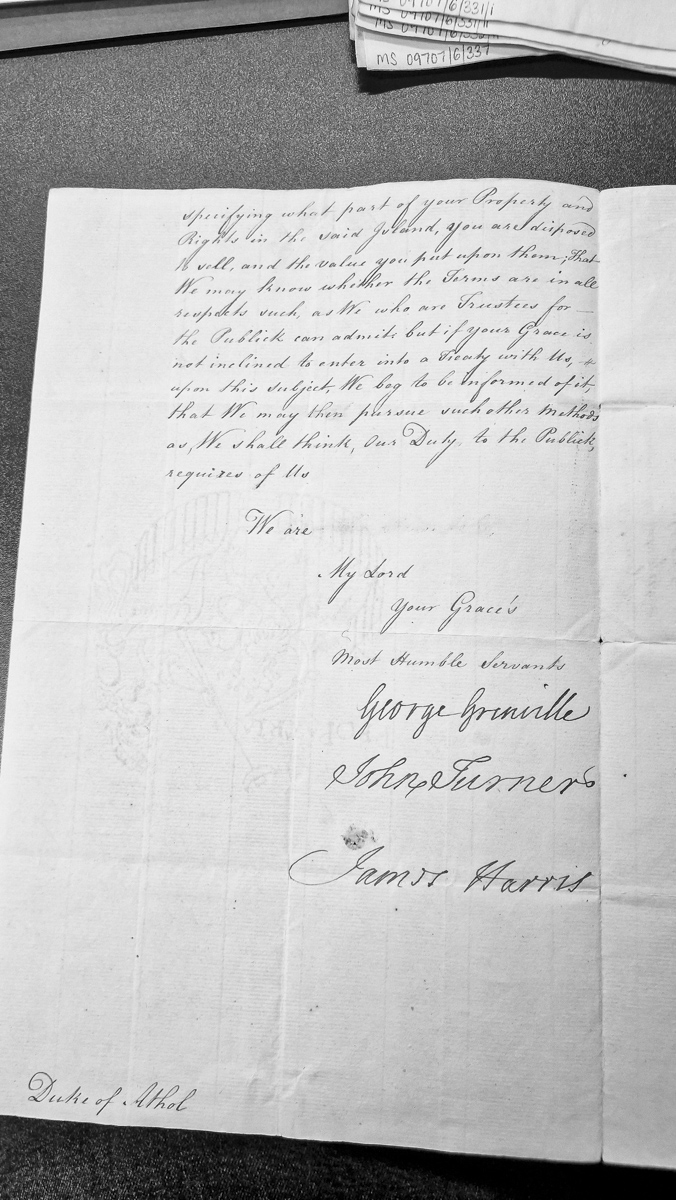 MS 09707/6/331/i
MS 09707/6/331/i
MS 09707/6/337
specifying what part of your Property and
Rights in the said Island, you are disposed
to sell, and the value you put upon them; That
We may know whether the Terms are in all
respects such, as We who are Trustees for
the Publick can admit; but if your Grace is
not inclined to enter into a Treaty with Us,
upon this subject, We beg to be informed of it,
that We may then pursue such other Methods
as, We shall think, our Duty to the Publick,
requires of Us
We are
My Lord
Your Grace's
Most Humble Servants
George Grenville
John Turner
James Harris
Duke of Athol